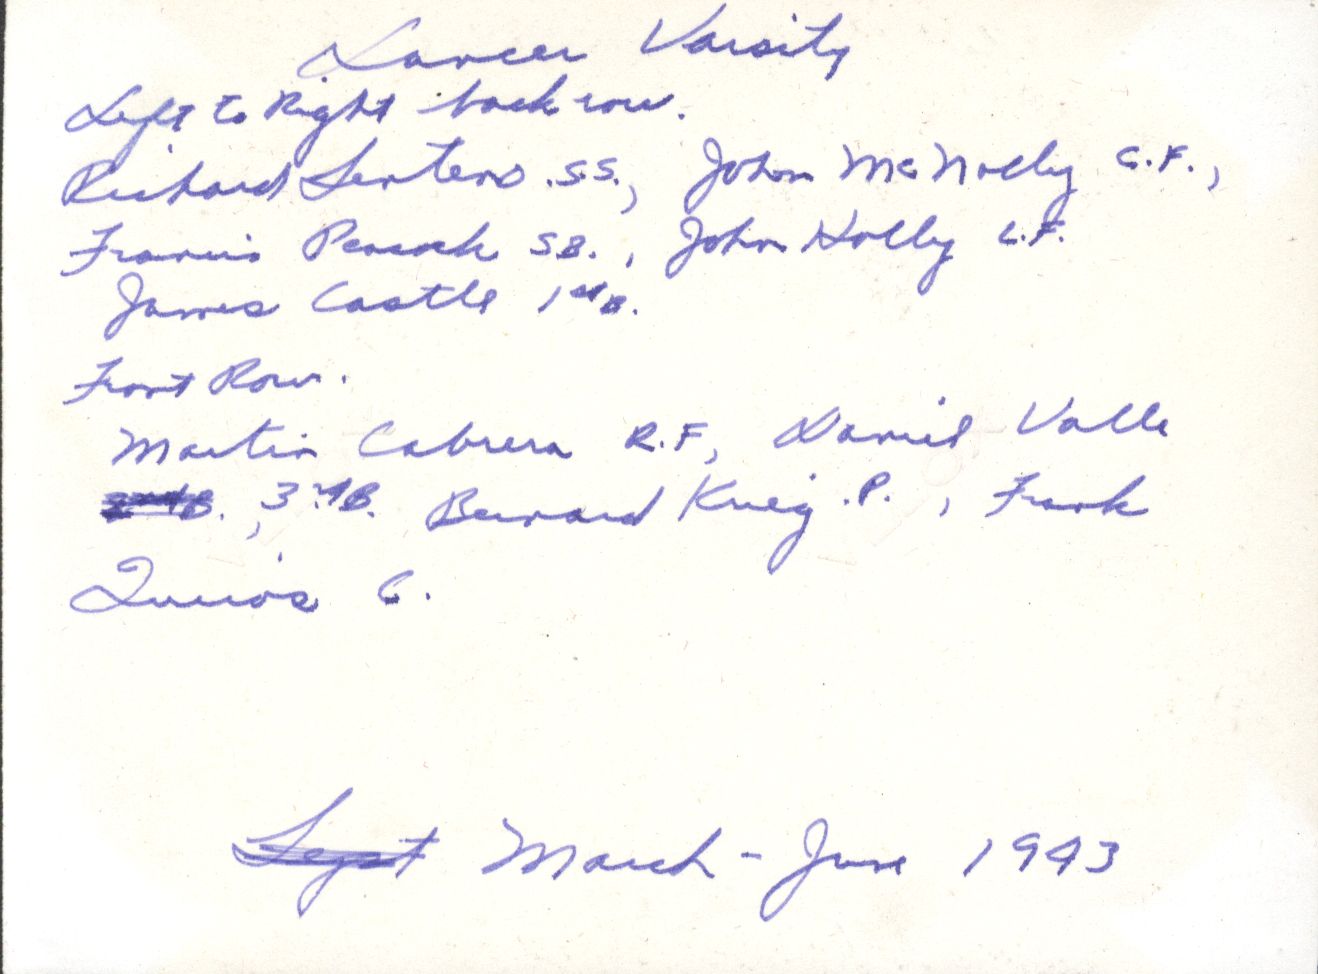 Lancer Varsity
Left to Right back row.
Richard Senteno .S.S., John McNolly C.F.,
Francis Peacock SB., John Holly L.F.
James Castle 1stB.
Front Row.
Martin Cabrera R.F, Daniel Valle
2ndB. , 3rdB. Bernard Kreig .P. , Frank
C.
Sept March - June 1943